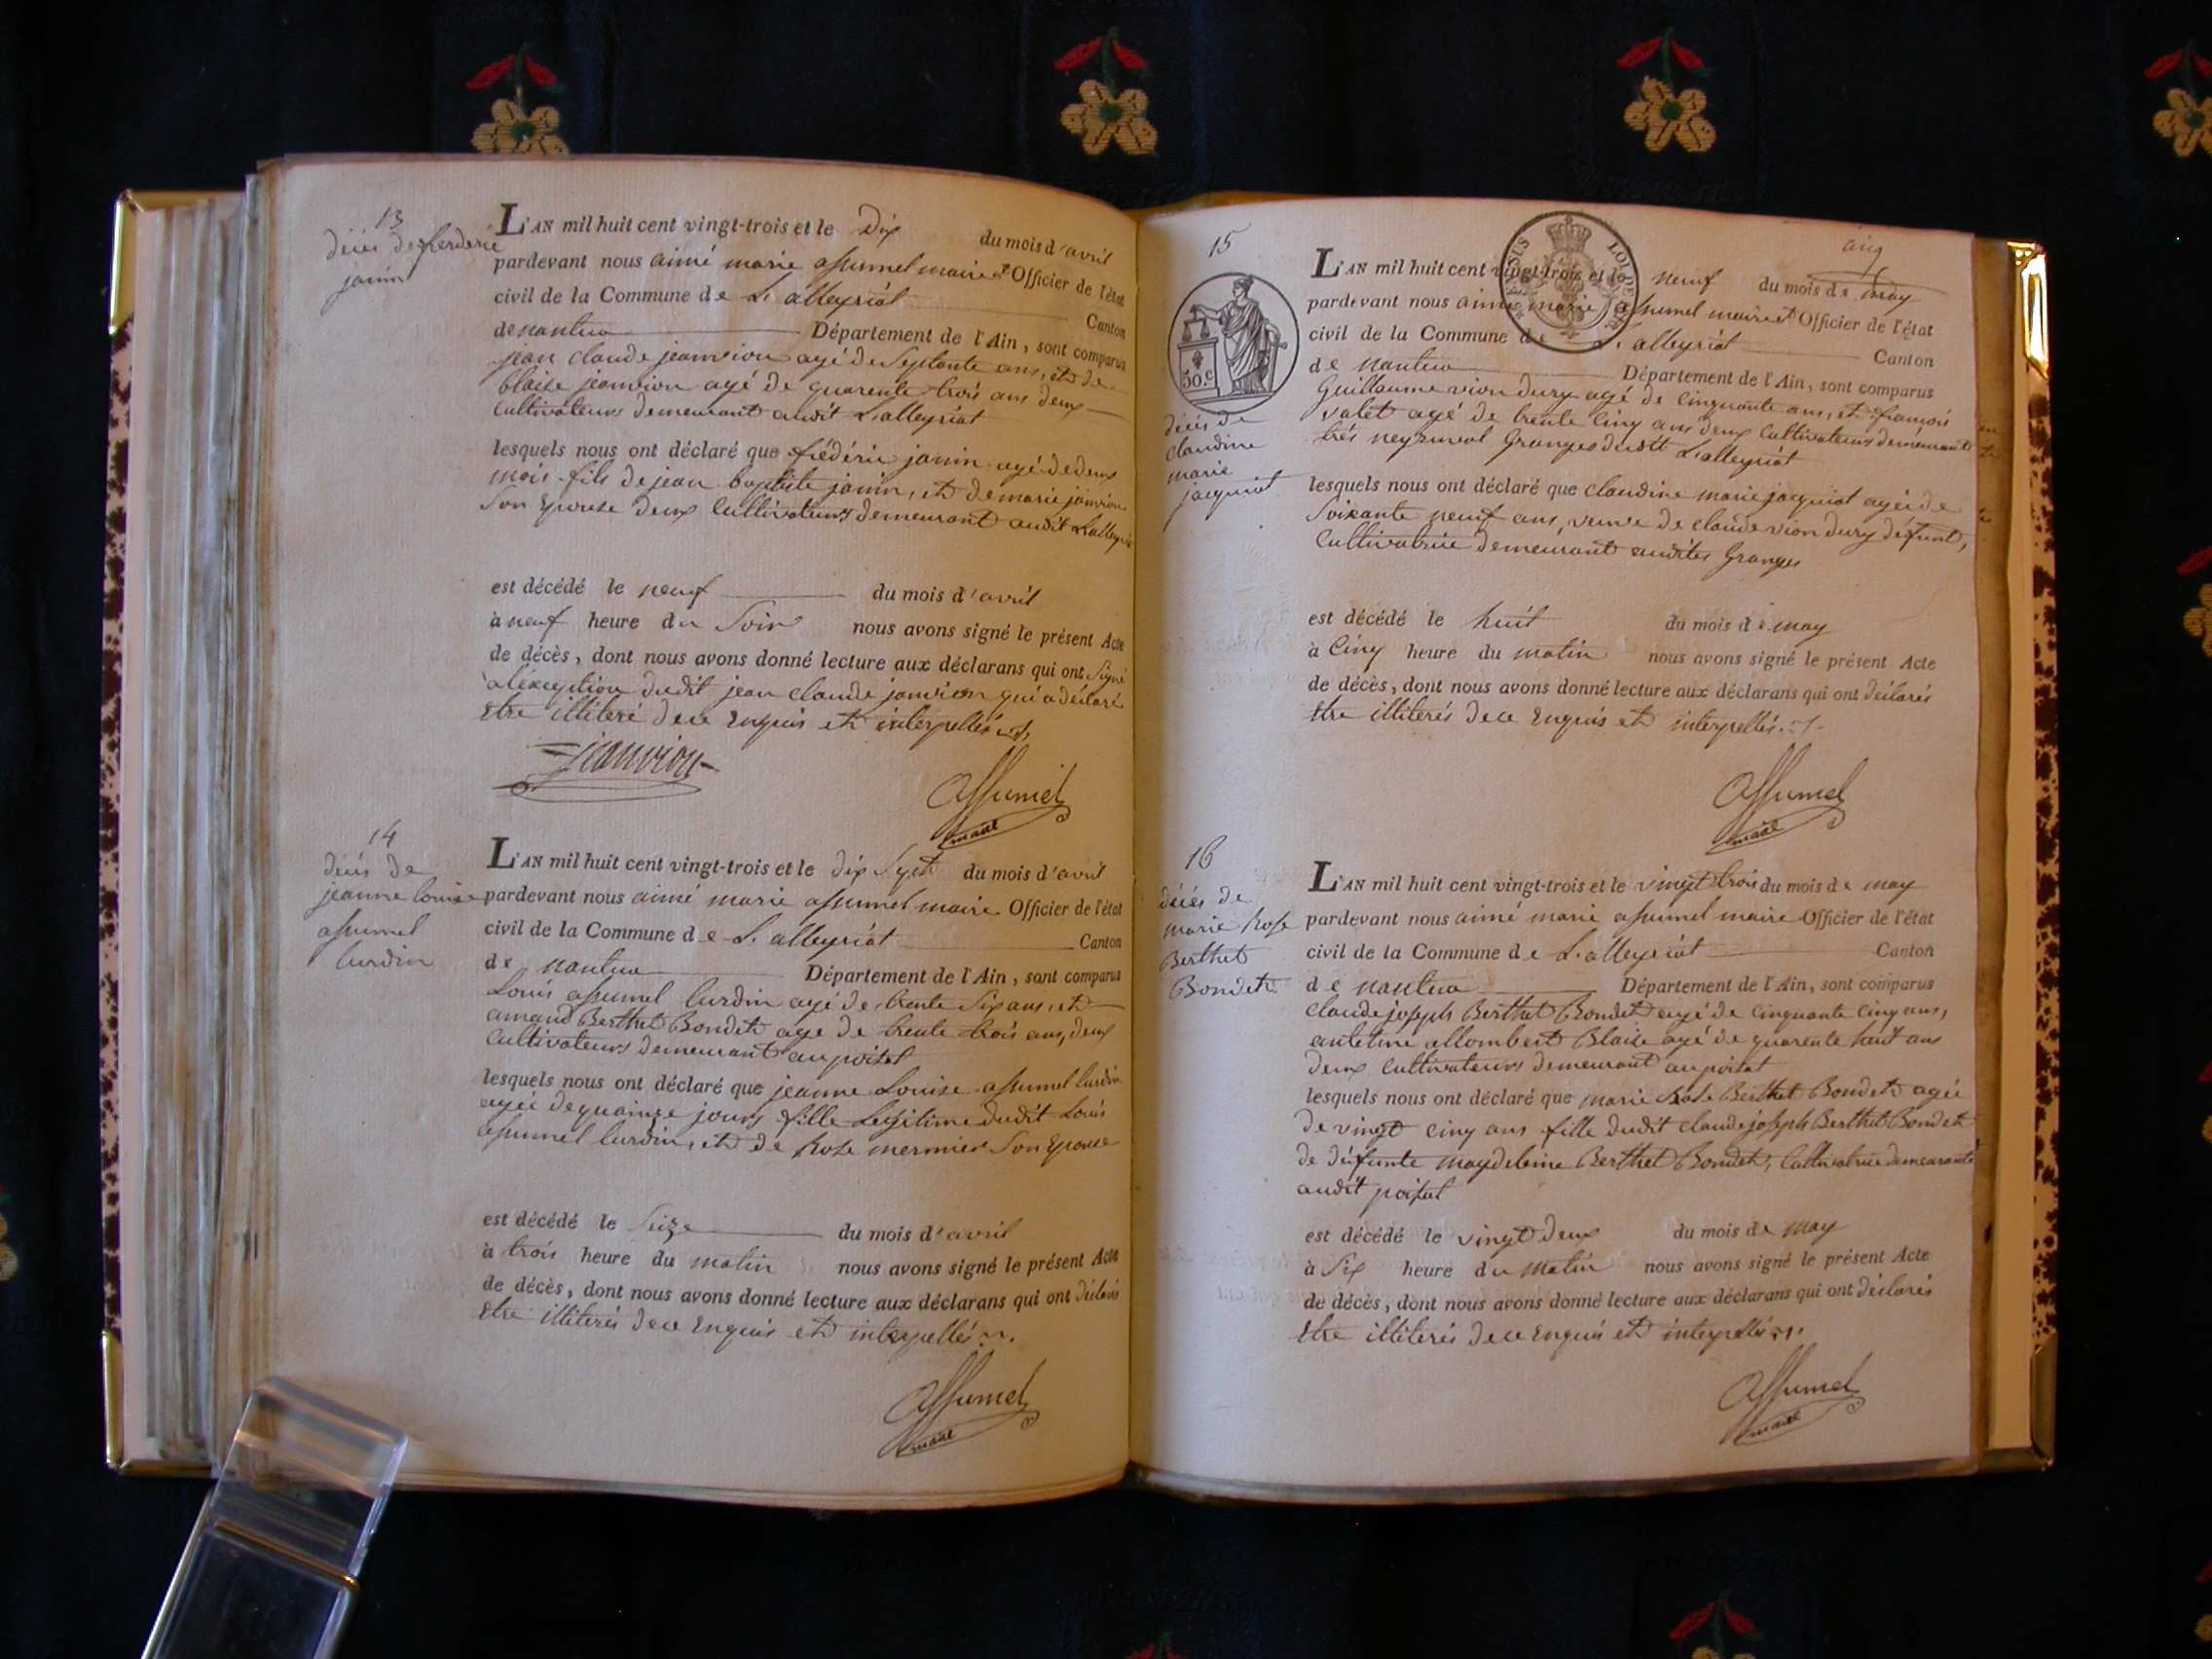 13
décès de frederic
janin
L'AN mil huit cent vingt-trois et le Dix du mois d'avril
pardevant nous aimé marie assumel maire et Officier de l'état
civil de la Commune de L'alleyriat Canton
de nantua Département de l'Ain, sont comparus
jean claude jeanvion agé de Septante ans, et de
blaise jeanvion agé de quarente trois ans deux
cultivateurs demeurant audit L'alleyriat
lesquels nous ont déclaré que frédéric janin agé de deux
mois fils de jean baptiste janin, et de marie janvion
Son epouse deux Cultivateurs demeurant audit L'alleyriat
est décédé le neuf du mois d'avril
à neuf heure du Soir nous avons signé le présent Acte
de décès, dont nous avons donné lecture aux déclarans qui ont Signé
a l'éxception dudit jean claude janvion qui a déclaré
Etre illiteré de ce Enquis et interpellés
jeanvion
assumel
maire
14
décès de
jeanne louise
assumel
lurdin
L'AN mil huit cent vingt-trois et le dix Sept du mois d'avril
pardevant nous aimé marie assumel maire Officier de l'état
civil de la Commune de L'alleyriat Canton
de nantua Département de l'Ain, sont comparus
Louis assumel lurdin agé de trente Six ans, et
amand Berthet Bondet age de trente trois ans, deux
Cultivateurs demeurant au poizat
lesquels nous ont déclaré que jeanne Louise assumel lurdin
agée de quainze jours fille Legitime dudit Louis
assumel lurdin, et de Rose mermier Son Epouse
est décédé le Seize du mois d'avril
à trois heure du matin nous avons signé le présent Acte
de décès, dont nous avons donné lecture aux déclarans qui ont déclarés
Etre illiterés de ce Enquis et interpellés
assumel
maire
15
50.c
LOI DE
décès de
claudine
marie
jacquiot
L'AN mil huit cent vingt-trois et le neuf du mois de may
pardevant nous aimé marie assumel maire et Officier de l'état
civil de la Commune de L'alleyriat Canton
de nantua Département de l'Ain, sont comparus
Guillaume vion dury agé de Cinquante ans, et françois
valet agé de trente Cinq ans deux Cultivateurs demeurants
Granges dudit L'alleyriat
lesquels nous ont déclaré que claudine marie jacquiot agée de
Soixante neuf ans, veuve de claude vion dury défunt,
Cultivatrice demeurant audites Granges
est décédé le huit du mois de may
à Cinq heure du matin nous avons signé le présent Acte
de décès, dont nous avons donné lecture aux déclarans qui ont déclarés
Etre illiterés de ce Enquis et interpellés
assumel
maire
16
décès de
marie Rose
Berthet
Bondet
L'AN mil huit cent vingt-trois et le vingt trois du mois de may
pardevant nous aimé marie assumel maire Officier de l'état
civil de la Commune de L'alleyriat Canton
de nantua Département de l'Ain, sont comparus
claude joseph Berthet Bondet agé de Cinquante Cinq ans,
antelme allombert Blaise agé de quarente huit ans
deux Cultivateurs demeurant au poizat
lesquels nous ont déclaré que marie Rose Berthet Bondet agée
de vingt Cinq ans fille dudit claude joseph Berthet Bondet
de défunte magdeleine Berthet Bondet, Cultivatrice demeurante
audit poizat
est décédé le vingt deux du mois de may
à Six heure du matin nous avons signé le présent Acte
de décès, dont nous avons donné lecture aux déclarans qui ont déclarés
Etre illiterés de ce Enquis et interpellés
assumel
maire